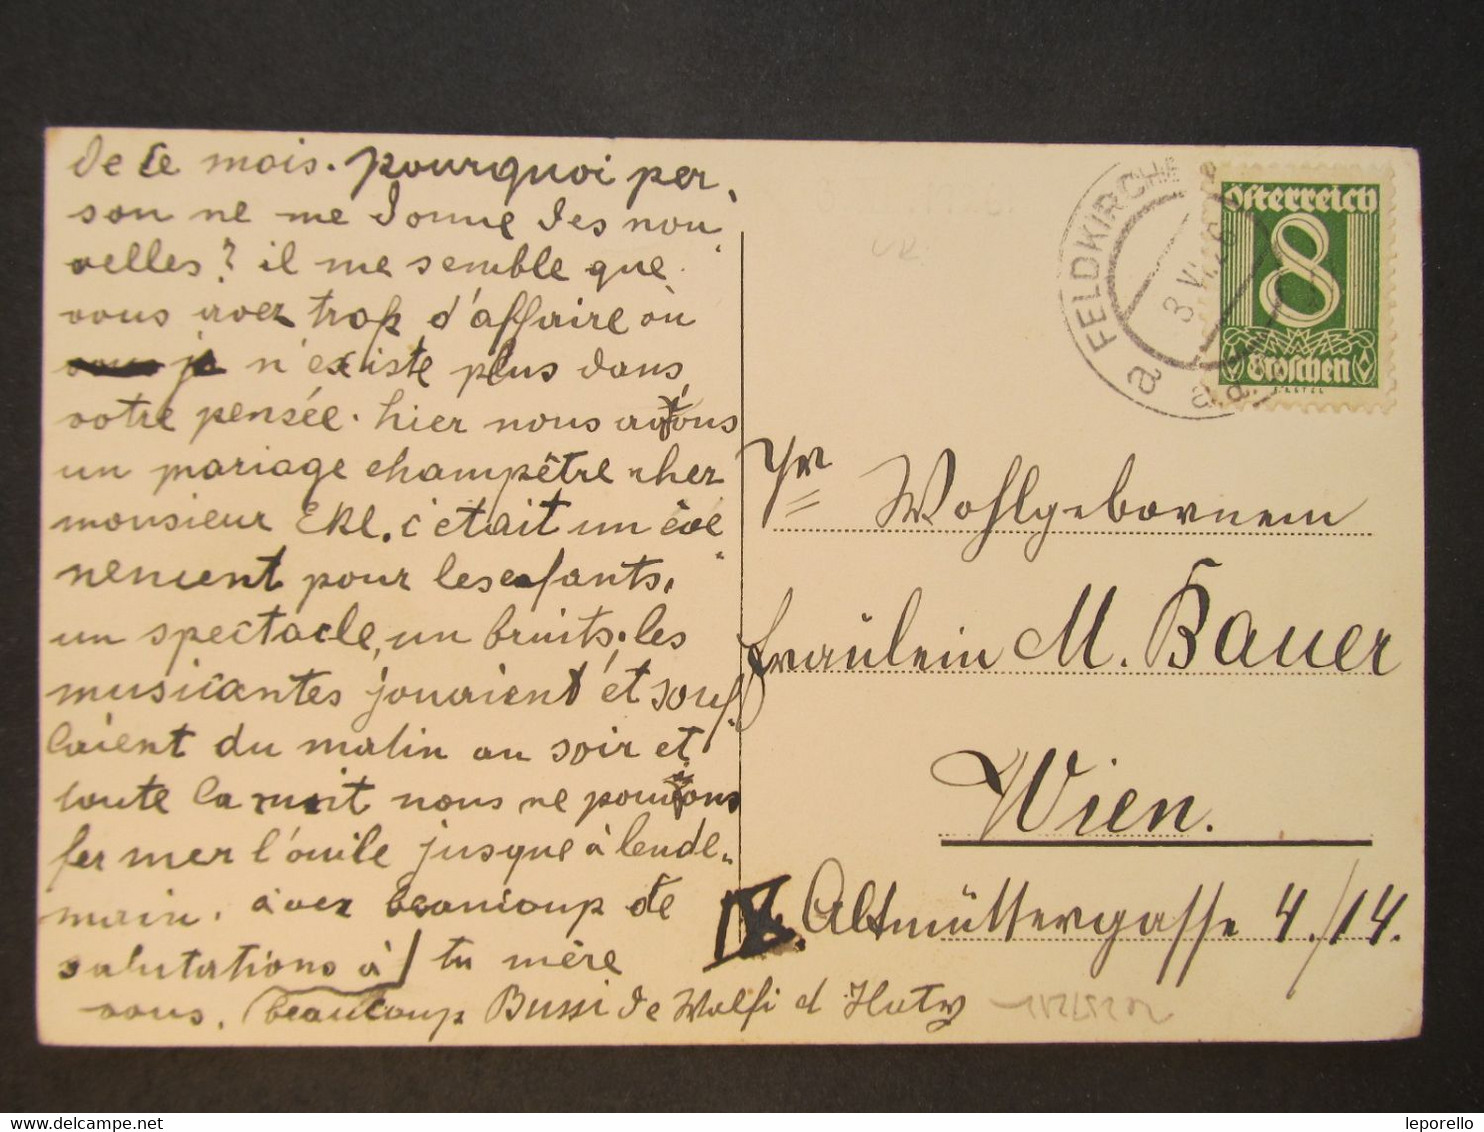 de ce mois. pourquoi per-
son ne me donne des nou-
velles? il me semble que
vous avez trop d'affaire où
je n'existe plus dans
votre pensée. hier nous avions
un mariage champêtre cher
monsieur EKL. c'était un évé
nement pour les enfants.
un spectacle, un bruits. les
musicantes jouaient et souf-
laient du matin au soir et
toute la nuit nous ne pouvions
fermer l'ouile jusque à lende-
main. avec beaucoup de
salutations à tu mère
vous. beaucoup Bussi de Wolfi
FELDKIRCH
8 VI. 26
a
Österreich
8
Groschen
Wohlgebornem
Fräulein M. Bauer
Wien.
IX. Altmüttergasse 4./14.
leporello